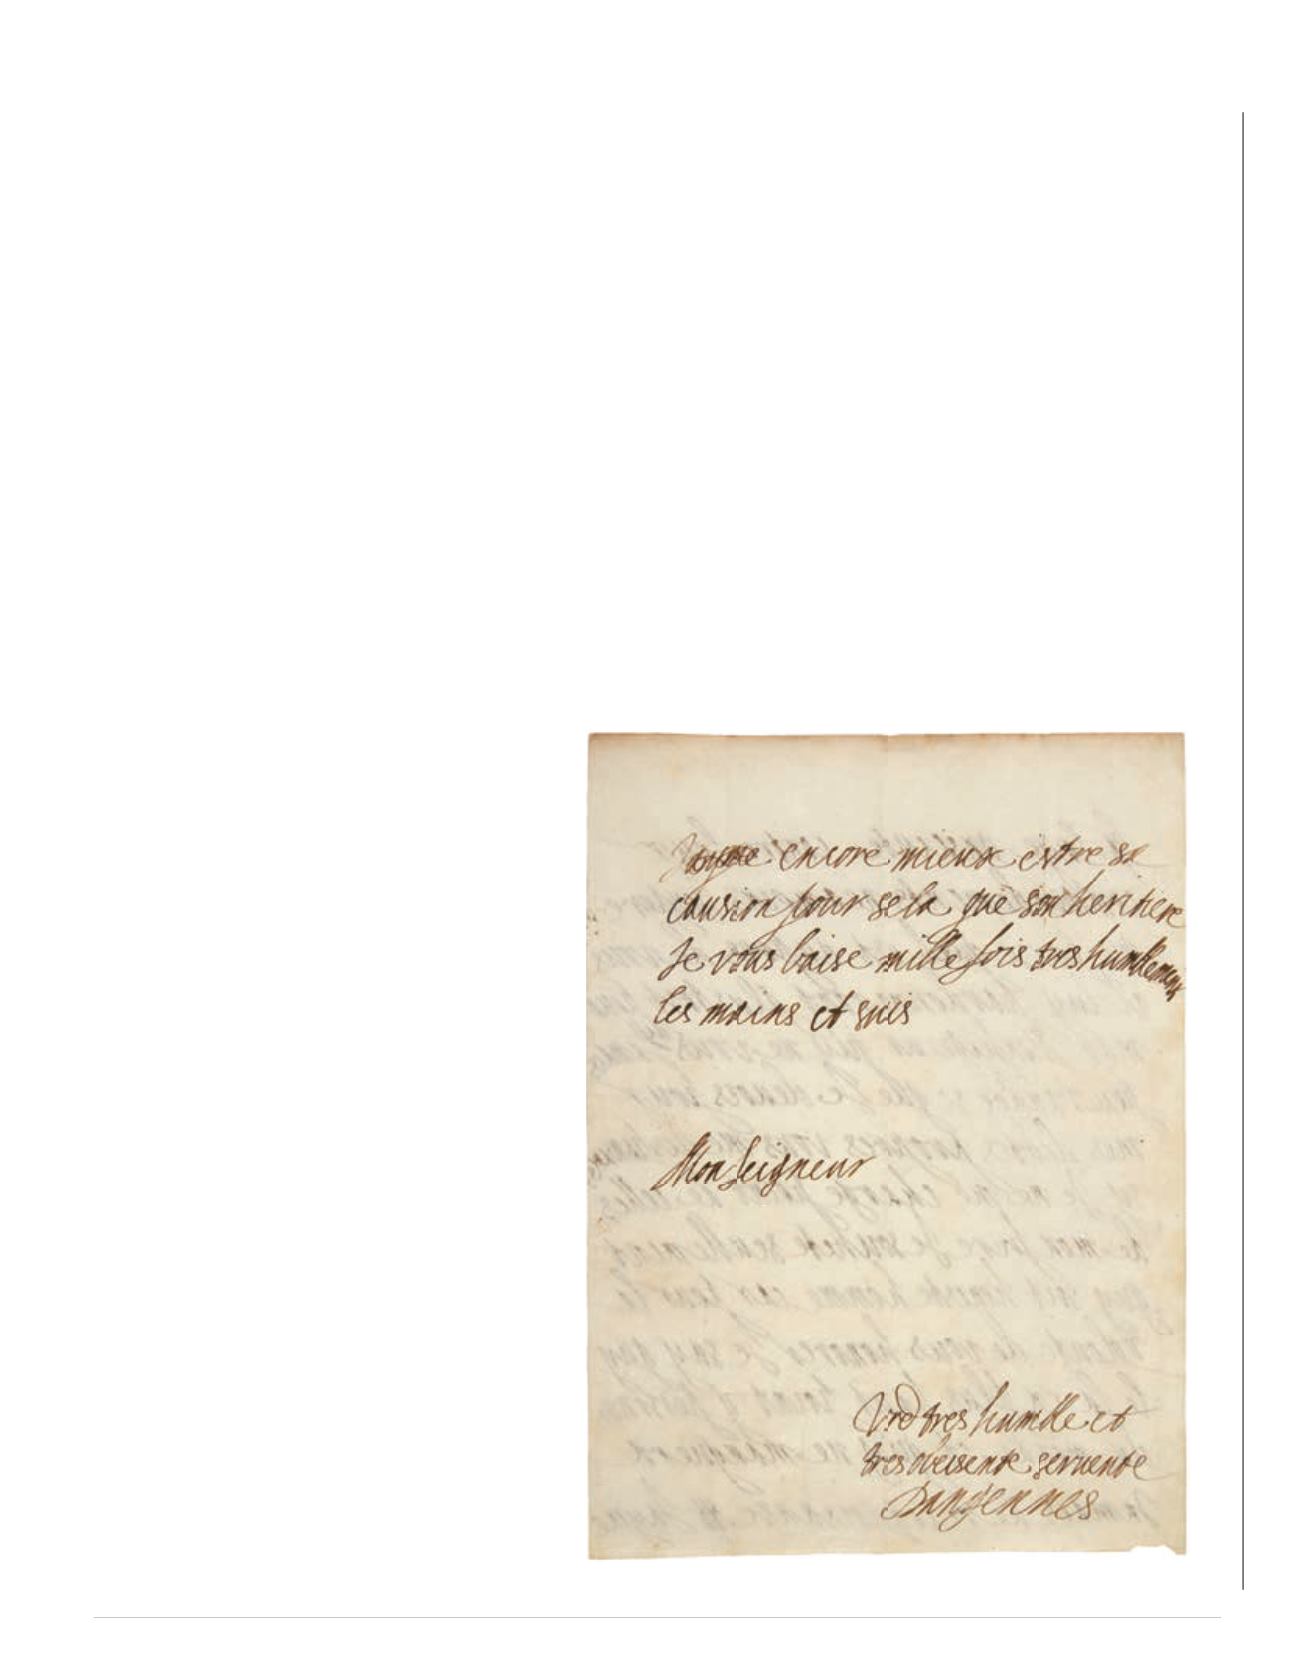 Jayme encore mieux estre sa
causion pour sela que son heritiere
Je vous baise mille fois tres humblement
les mains et suis
Monseigneur
Vre tres humble et
tres obeisente servente
Dangennes